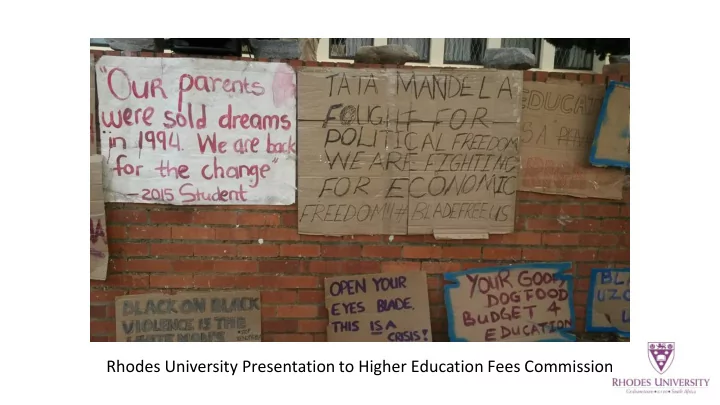 "Our parents
were sold dreams
in 1994. We are back
for the change"
- 2015 Student
TATA MANDELA
FOUGHT FOR
POLITICAL FREEDOM
WE ARE FIGHTING
FOR ECONOMIC
FREEDOM!!#BLADEFREEUS
EDUCAT
IS A
BLACK ON BLACK
VIOLENCE IS THE
OPEN YOUR
EYES BLADE,
THIS IS A
CRISIS!
YOUR GOOFY
DOGFOOD
BUDGET 4
EDUCATION
BL
UZO
Rhodes University Presentation to Higher Education Fees Commission
RHODES UNIVERSITY